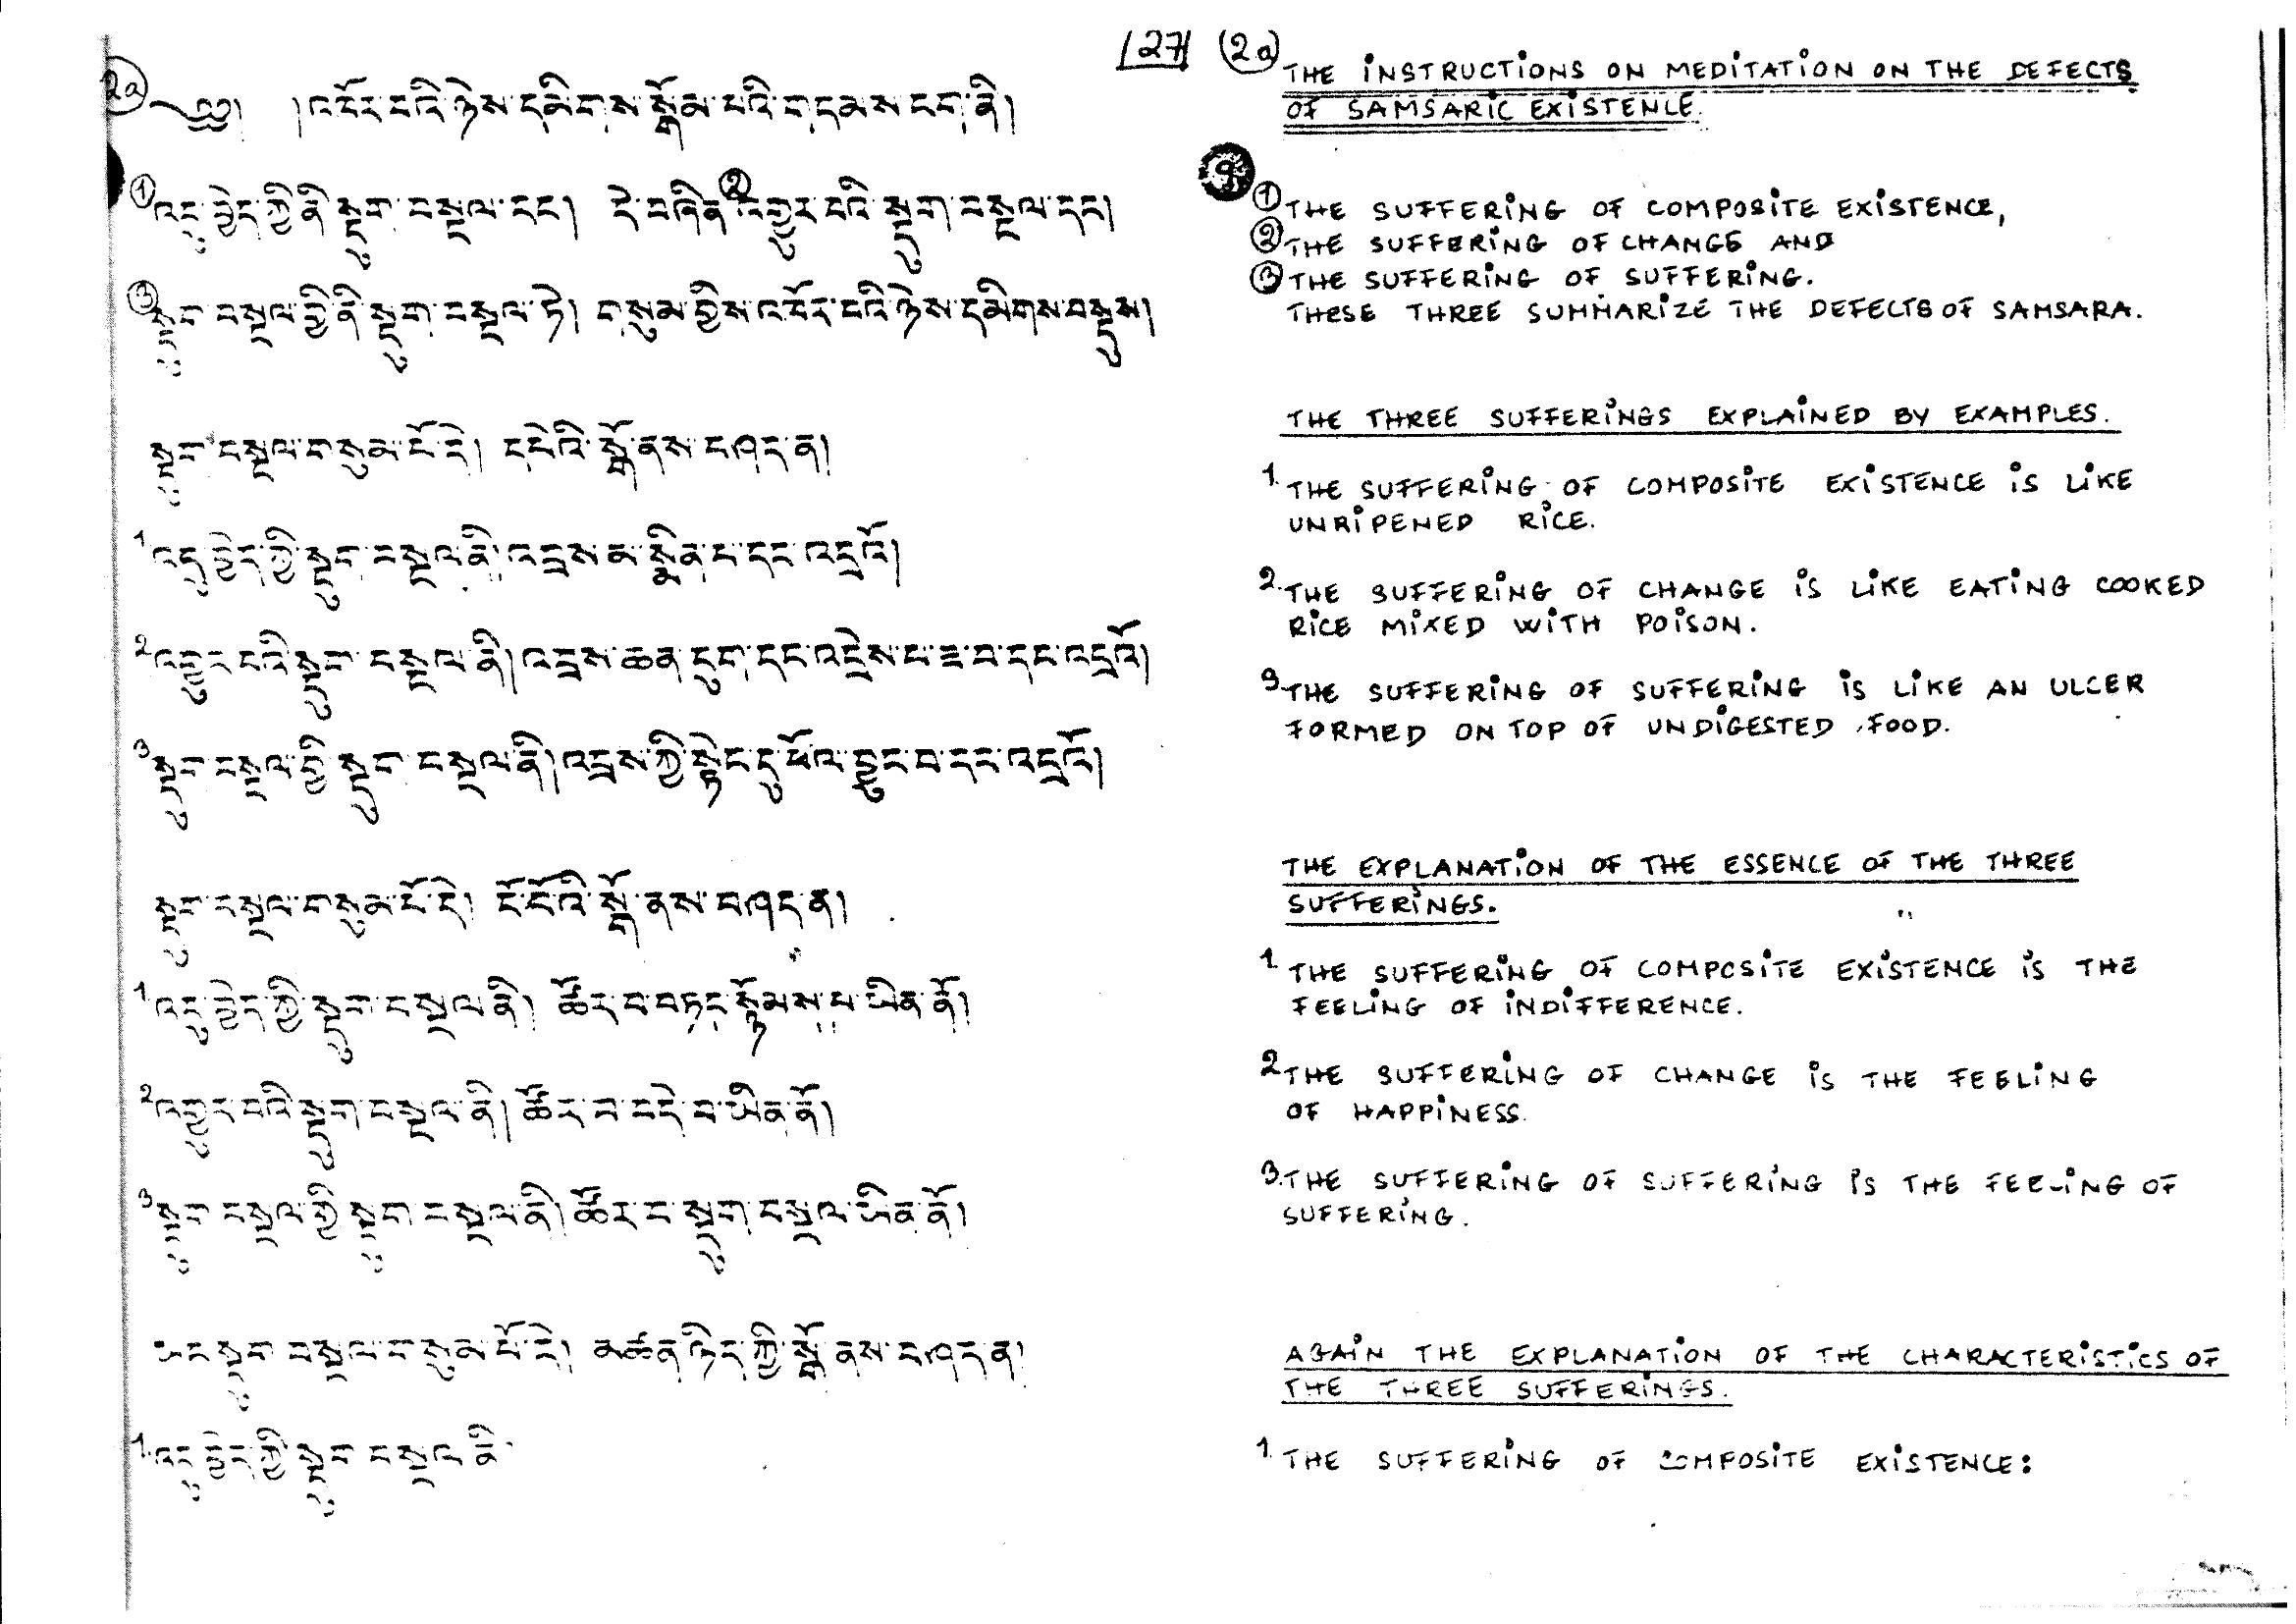 2a
༄༅། །འཁོར་བའི་ཉེས་དམིགས་སྒོམ་པའི་གདམས་ངག་ནི།
① འདུ་བྱེད་ཀྱི་ནི་སྡུག་བསྔལ་དང༌། དེ་བཞིན་② འགྱུར་བའི་སྡུག་བསྔལ་དང༌།
③ སྡུག་བསྔལ་གྱི་ནི་སྡུག་བསྔལ་ཏེ། གསུམ་གྱིས་འཁོར་བའི་ཉེས་དམིགས་བསྡུས།
སྡུག་བསྔལ་གསུམ་པོ་དེ། དཔེའི་སྒོ་ནས་བཤད་ན།
1 འདུ་བྱེད་ཀྱི་སྡུག་བསྔལ་ནི། འབྲས་མ་སྨིན་པ་དང་འདྲའོ།
2 འགྱུར་བའི་སྡུག་བསྔལ་ནི། འབྲས་ཆན་དུག་དང་འདྲེས་པ་ཟ་བ་དང་འདྲའོ།
3 སྡུག་བསྔལ་གྱི་སྡུག་བསྔལ་ནི། འབྲས་ཀྱི་སྟེང་དུ་ཕོལ་བྱུང་བ་དང་འདྲའོ།
སྡུག་བསྔལ་གསུམ་པོ་དེ། ངོ་བོའི་སྒོ་ནས་བཤད་ན།
1 འདུ་བྱེད་ཀྱི་སྡུག་བསྔལ་ནི། ཚོར་བ་བཏང་སྙོམས་པ་ཡིན་ནོ།
2 འགྱུར་བའི་སྡུག་བསྔལ་ནི། ཚོར་བ་བདེ་བ་ཡིན་ནོ།
3 སྡུག་བསྔལ་གྱི་སྡུག་བསྔལ་ནི། ཚོར་བ་སྡུག་བསྔལ་ཡིན་ནོ།
ཡང་སྡུག་བསྔལ་གསུམ་པོ་དེ། མཚན་ཉིད་ཀྱི་སྒོ་ནས་བཤད་ན།
1. འདུ་བྱེད་ཀྱི་སྡུག་བསྔལ་ནི་
27 (2a)
THE INSTRUCTIONS ON MEDITATION ON THE DEFECTS
OF SAMSARIC EXISTENCE.
9
① THE SUFFERING OF COMPOSITE EXISTENCE,
② THE SUFFERING OF CHANGE AND
③ THE SUFFERING OF SUFFERING.
THESE THREE SUMMARIZE THE DEFECTS OF SAMSARA.
THE THREE SUFFERINGS EXPLAINED BY EXAMPLES.
1. THE SUFFERING OF COMPOSITE EXISTENCE IS LIKE
UNRIPENED RICE.
2. THE SUFFERING OF CHANGE IS LIKE EATING COOKED
RICE MIXED WITH POISON.
3. THE SUFFERING OF SUFFERING IS LIKE AN ULCER
FORMED ON TOP OF UNDIGESTED FOOD.
THE EXPLANATION OF THE ESSENCE OF THE THREE
SUFFERINGS.
1 THE SUFFERING OF COMPOSITE EXISTENCE IS THE
FEELING OF INDIFFERENCE.
2 THE SUFFERING OF CHANGE IS THE FEELING
OF HAPPINESS.
3. THE SUFFERING OF SUFFERING IS THE FEELING OF
SUFFERING.
AGAIN THE EXPLANATION OF THE CHARACTERISTICS OF
THE THREE SUFFERINGS.
1. THE SUFFERING OF COMPOSITE EXISTENCE: